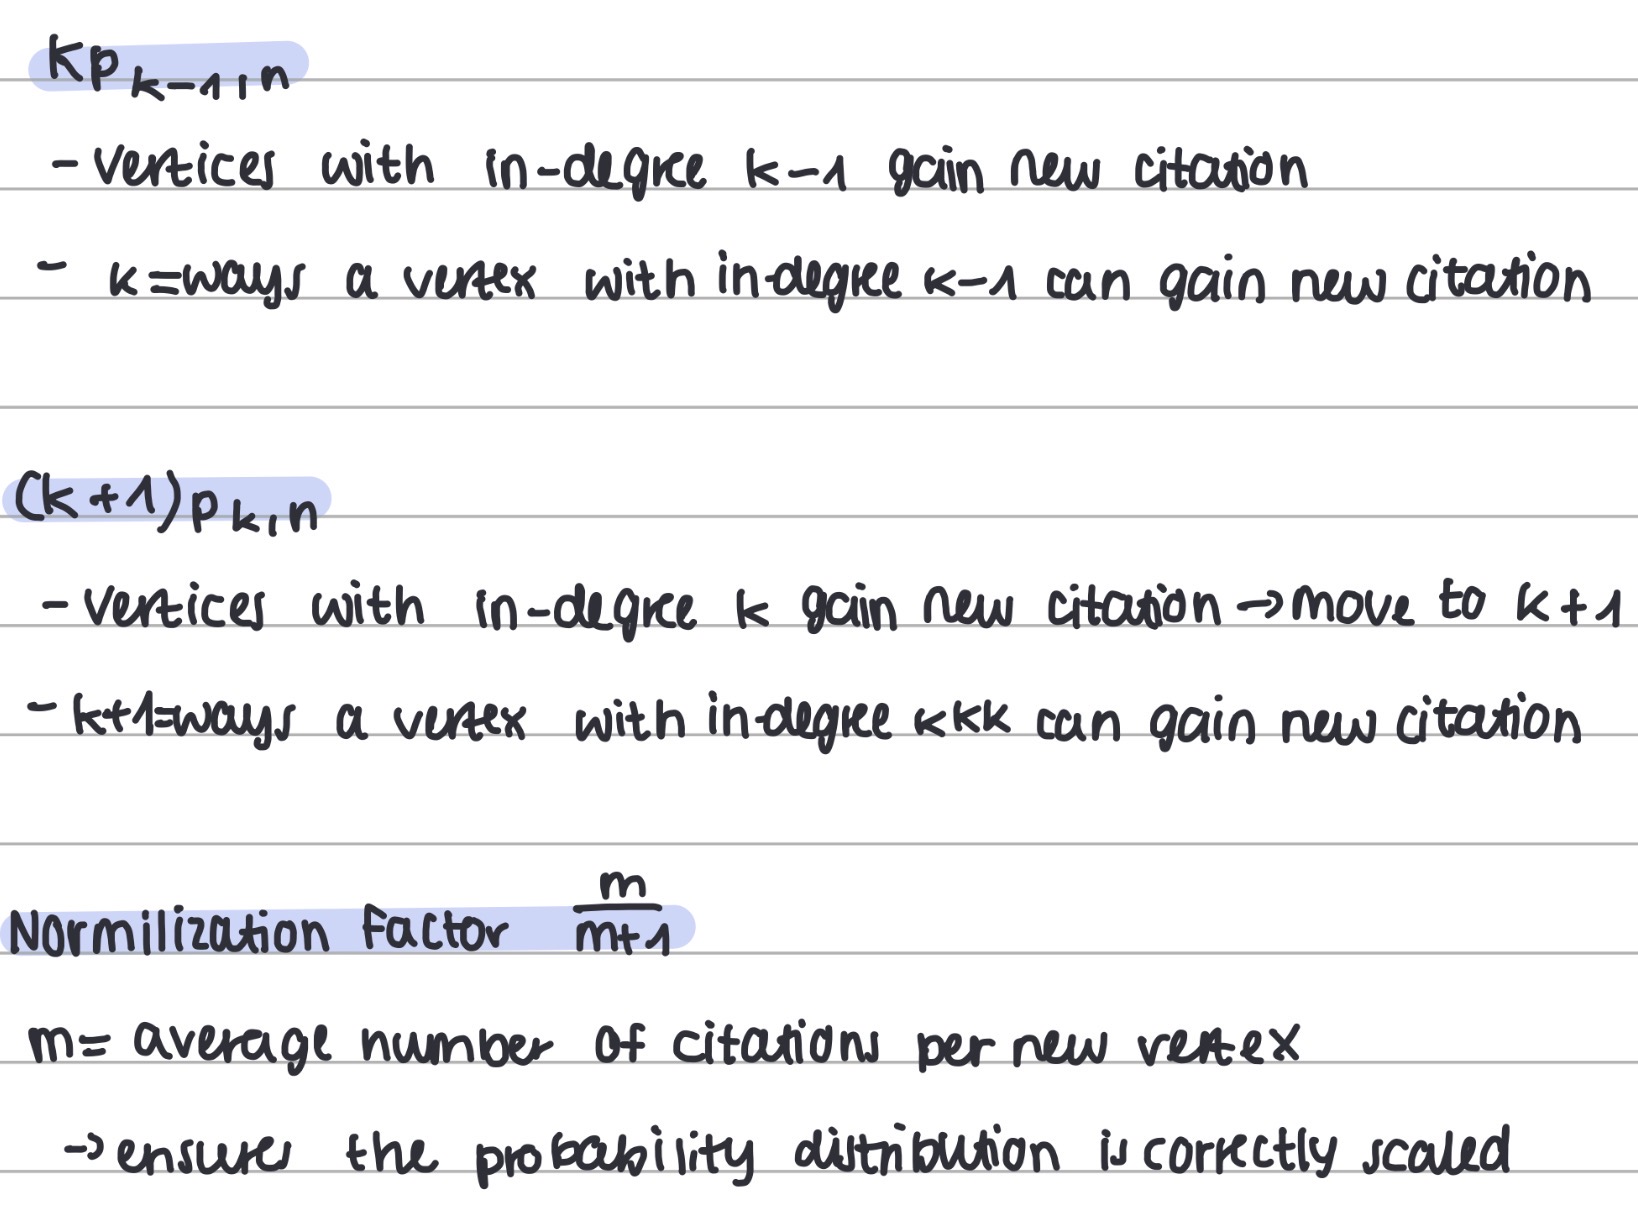 Kp k-1,n
- vertices with in-degree k-1 gain new citation
- k=ways a vertex with in-degree k-1 can gain new citation
(k+1)p k,n
- vertices with in-degree k gain new citation → move to k+1
- k+1=ways a vertex with in-degree kkk can gain new citation
Normilization Factor m/m+1
m= average number of citations per new vertex
→ ensures the probability distribution is correctly scaled